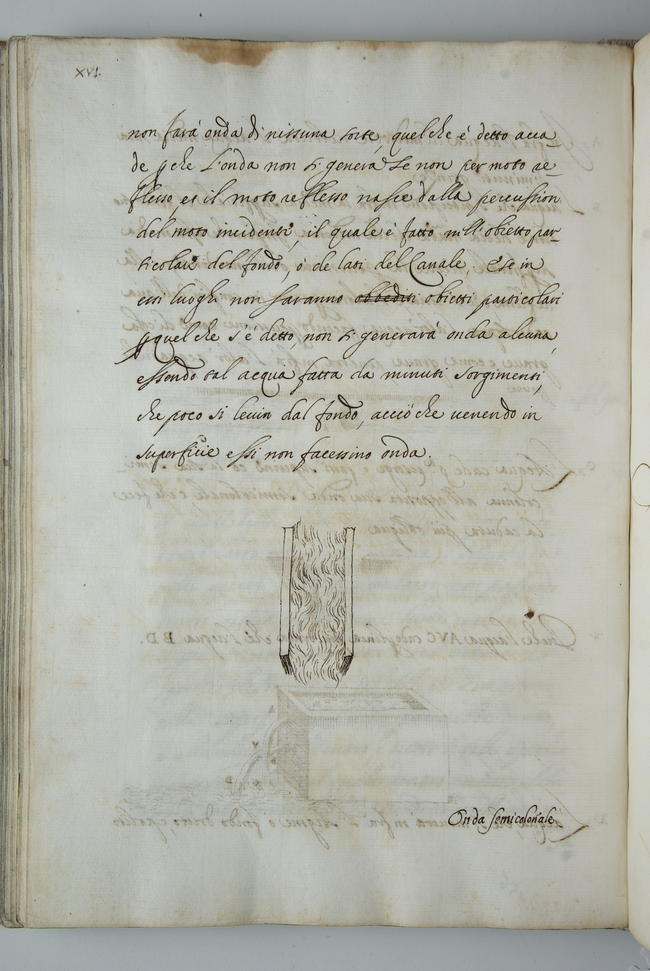 XVI.
non farà onda di nissuna sorte, quel che è detto acca-
de p che L'onda non si genera se non per moto re-
flesso, et il moto reflesso nasce dalla percussion
del moto incidente, il quale è fatto nell'obietto par-
ticolare del fondo, ò de lati del Canale, E se in
essi luoghi non saranno obbediti obietti particolari
p quel che s'è detto, non si generarà onda alcuna,
essendo tal acqua fatta da minuti sorgimenti,
che poco si levin dal fondo, acciò che venendo in
superficie essi non facessino onda.
Onda semicolonale